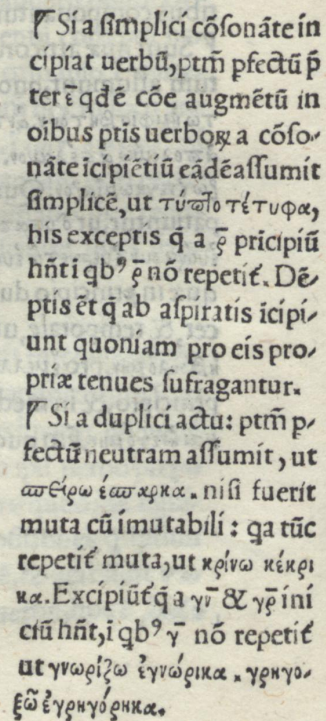 Si a simplici cõsonãte in
cipiat uerbũ, ptm̃ pfectũ p̃
ter ĩ qd ẽ cõe augmẽtũ in
oibus ptis uerboꝝ a cõso-
nãte ĩcipiẽtiũ eãdẽ assumit
simplicẽ, ut τύπτο τέτυφα,
his exceptis q̃ a ρ̃ pricipiũ
hñt i qbꝰ ρ̃ nõ repetit᷑. Dẽ-
ptis ẽt q̃ ab aspiratis icipi-
unt quoniam pro eis pro-
priæ tenues sufragantur.
Si a duplici actu: ptm̃ p-
fectũ neutram assumit, ut
σπείρω έσπαρκα. nisi fuerit
muta cũ ĩmutabili: qa tũc
repetit᷑ muta, ut κρίνω κέκρι
κα. Excipiũt᷑ q̃ a γν̃ & γρ̃ ini
ciũ hñt, i qbꝰ γ̃ nõ repetit᷑
ut γνωρίζω ἐγνώρικα. γρηγο-
ξῶ ἐγρηγόρηκα.